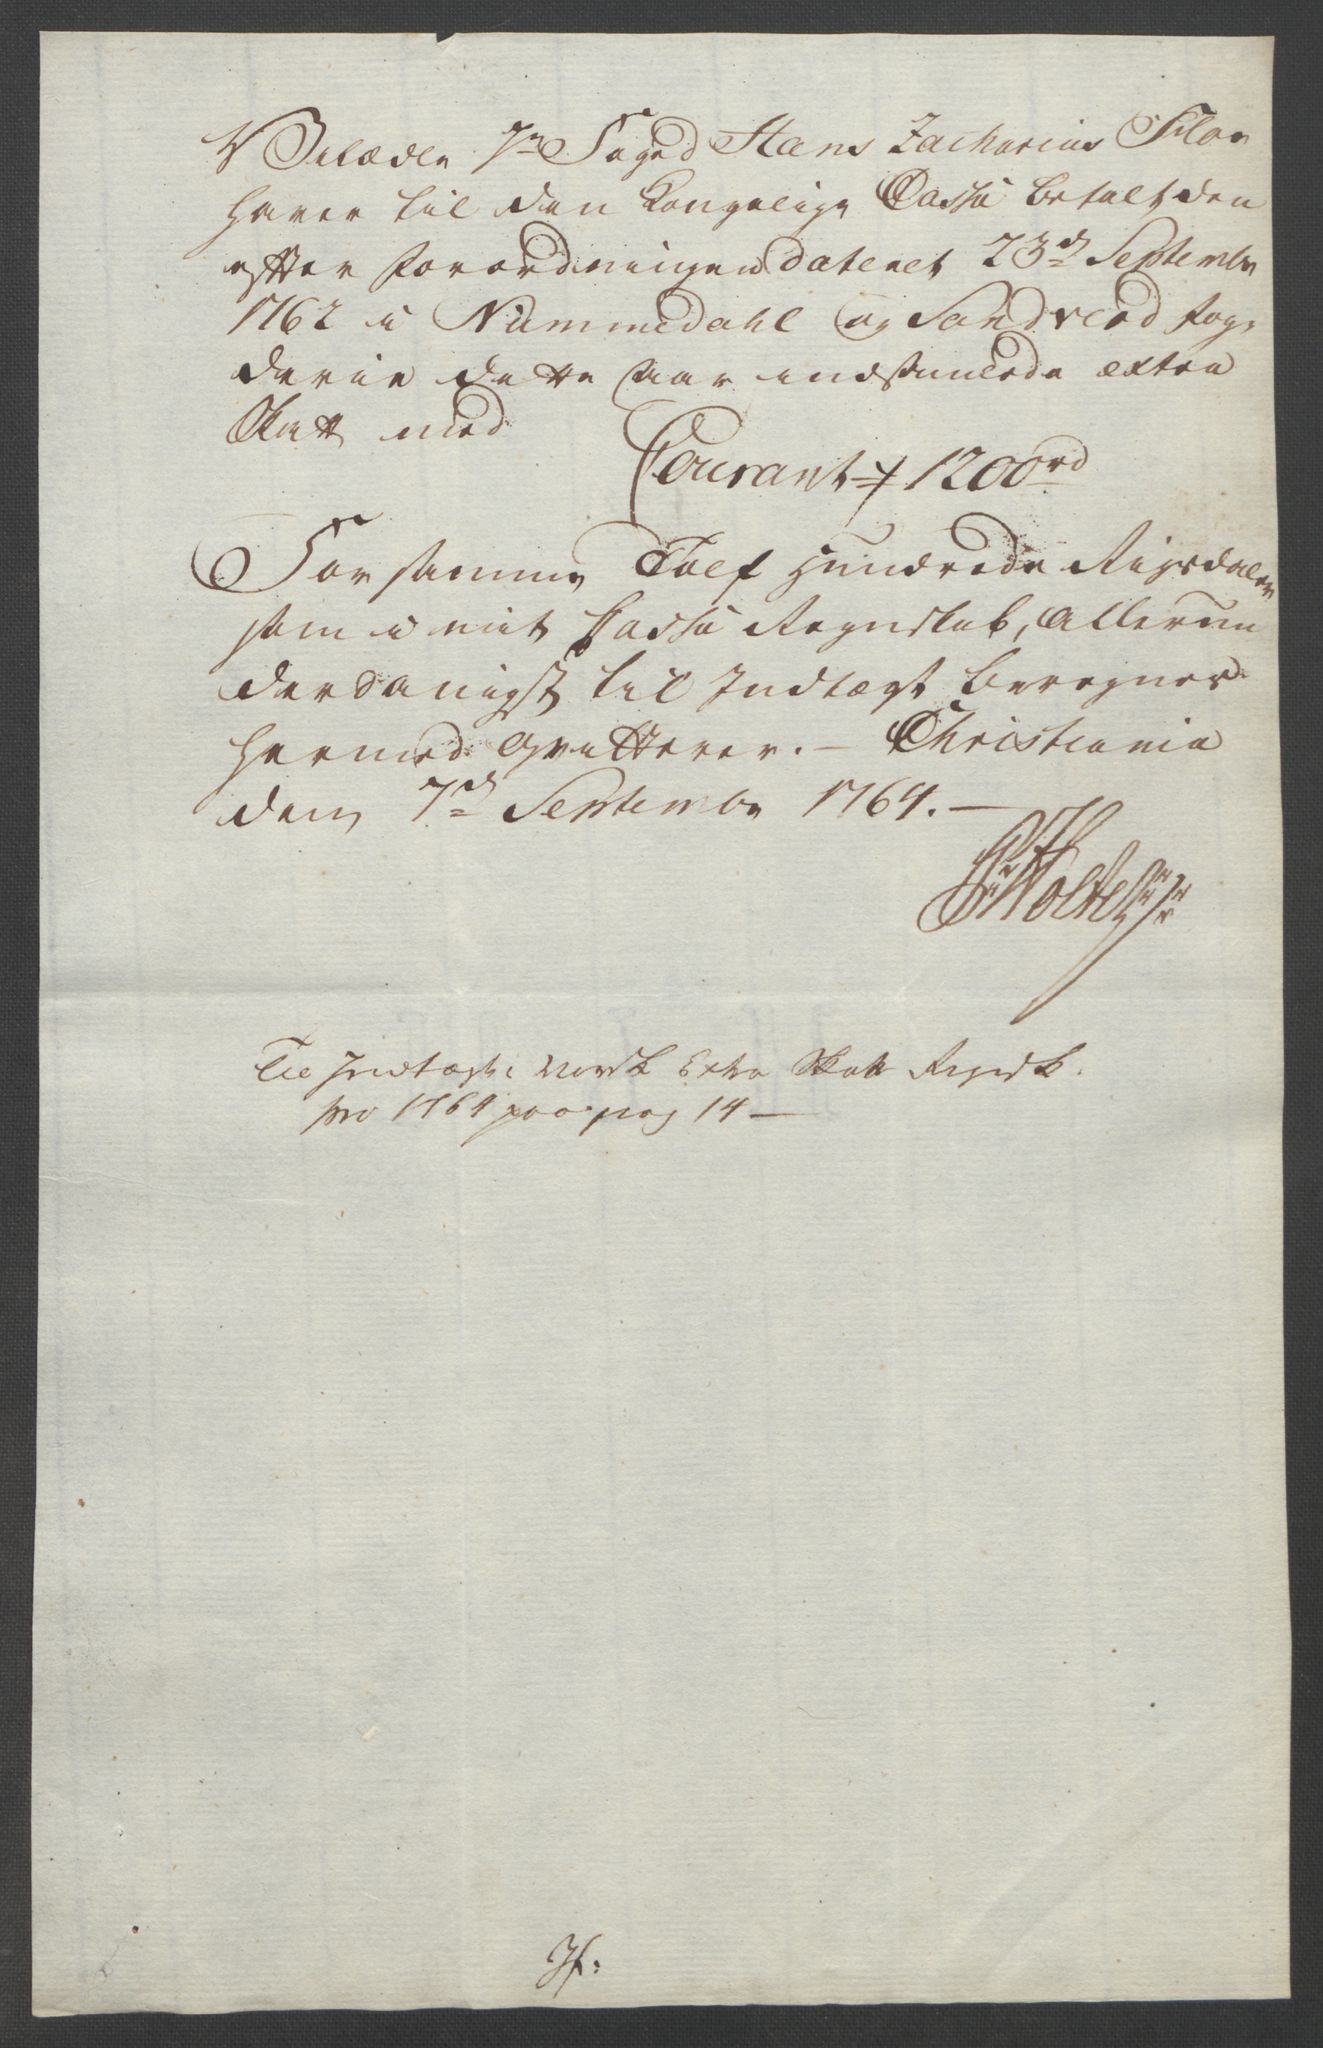 Velædle Hr Foged Hans Zacharius Flor
haver til den Kongelige Cassa betalt den
efter Forordningen dateret 23d Septembr
1762 i Nummedahl og Sandsverd Fog-
derie dette Aar indkomende extra
Skatt med
Courant 1200rd
For samme Tolf Hundrede Rigsdaler
som i mit Cassa Regnskab, Allerun
derdanigst til Indtægt beregnes
hermed qvitterer. — Christiania
den 7d Septembr 1764. —
Holte
Til Indtægt i Norsk Extra Skatt Regnsk.
pro 1764 paa pag 14 —